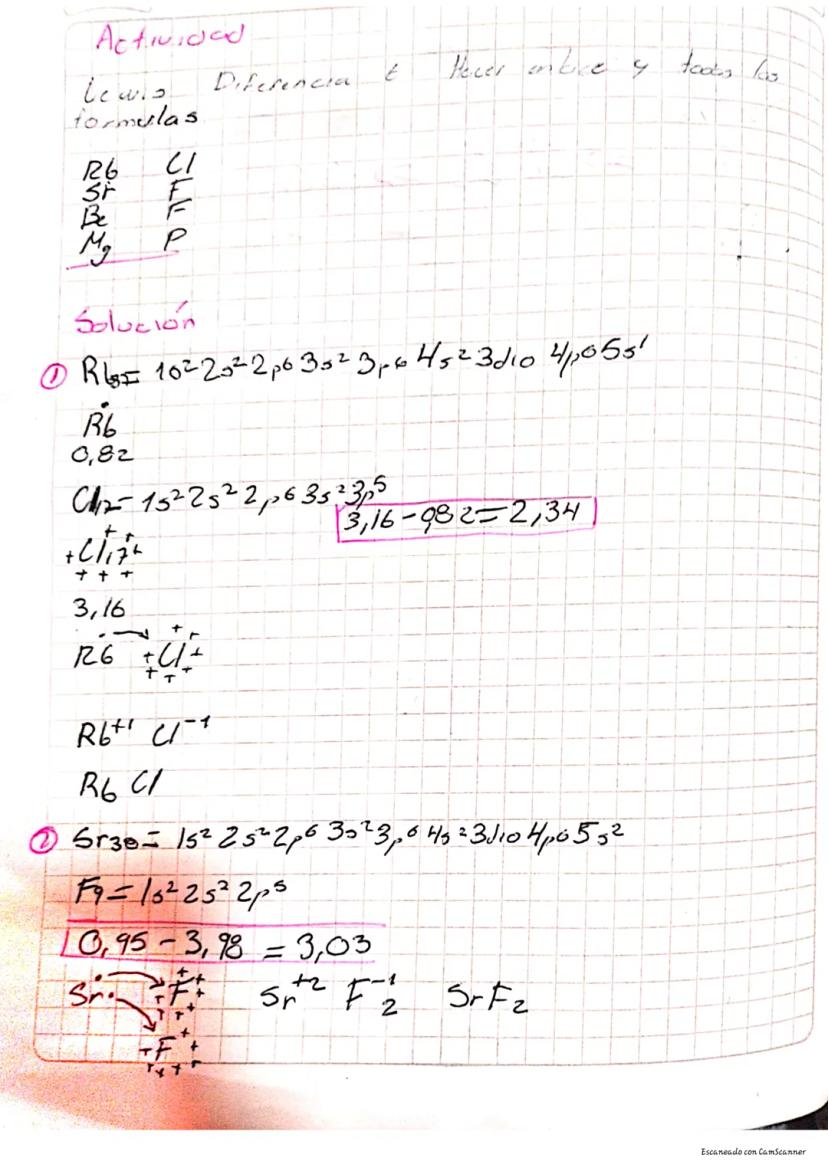 Actividad
Lewis Diferencia E Hacer enlace y todas las
formulas
Rb Cl
Sr F
Be F
Mg P
Solución
① Rb = 1s² 2s² 2p6 3s² 3p6 4s² 3d10 4p6 5s¹
Rb
0,82
Cl17 = 1s² 2s² 2p6 3s² 3p5
3,16 - 0,82 = 2,34
Cl
3,16
Rb Cl
Rb+1 Cl-1
Rb Cl
② Sr38 = 1s² 2s² 2p6 3s² 3p6 4s² 3d10 4p6 5s²
F9 = 1s² 2s² 2p5
0,95 - 3,98 = 3,03
Sr F Sr+2 F2-1 SrF2
F
Escaneado con CamScanner